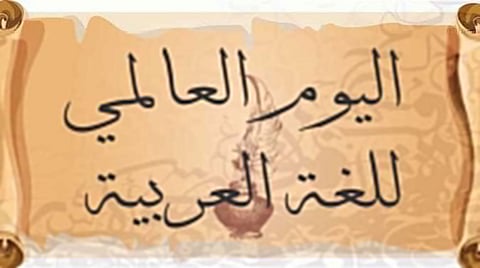 اليوم العالمي
للغة العربية